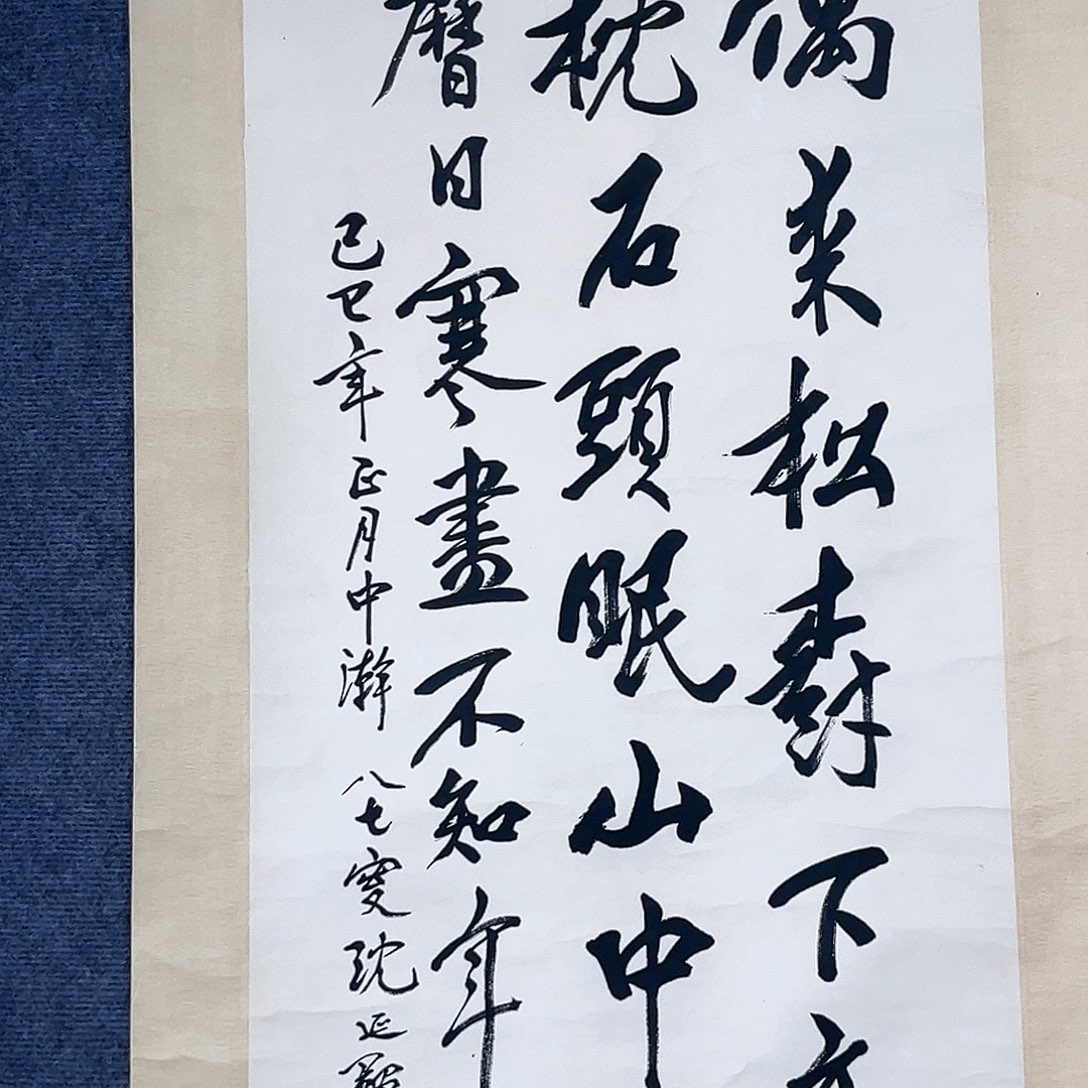 偶来松樹下
枕石頭眠山中
曆日寒盡不知年
己巳年正月中澣 八七叟沈延毅